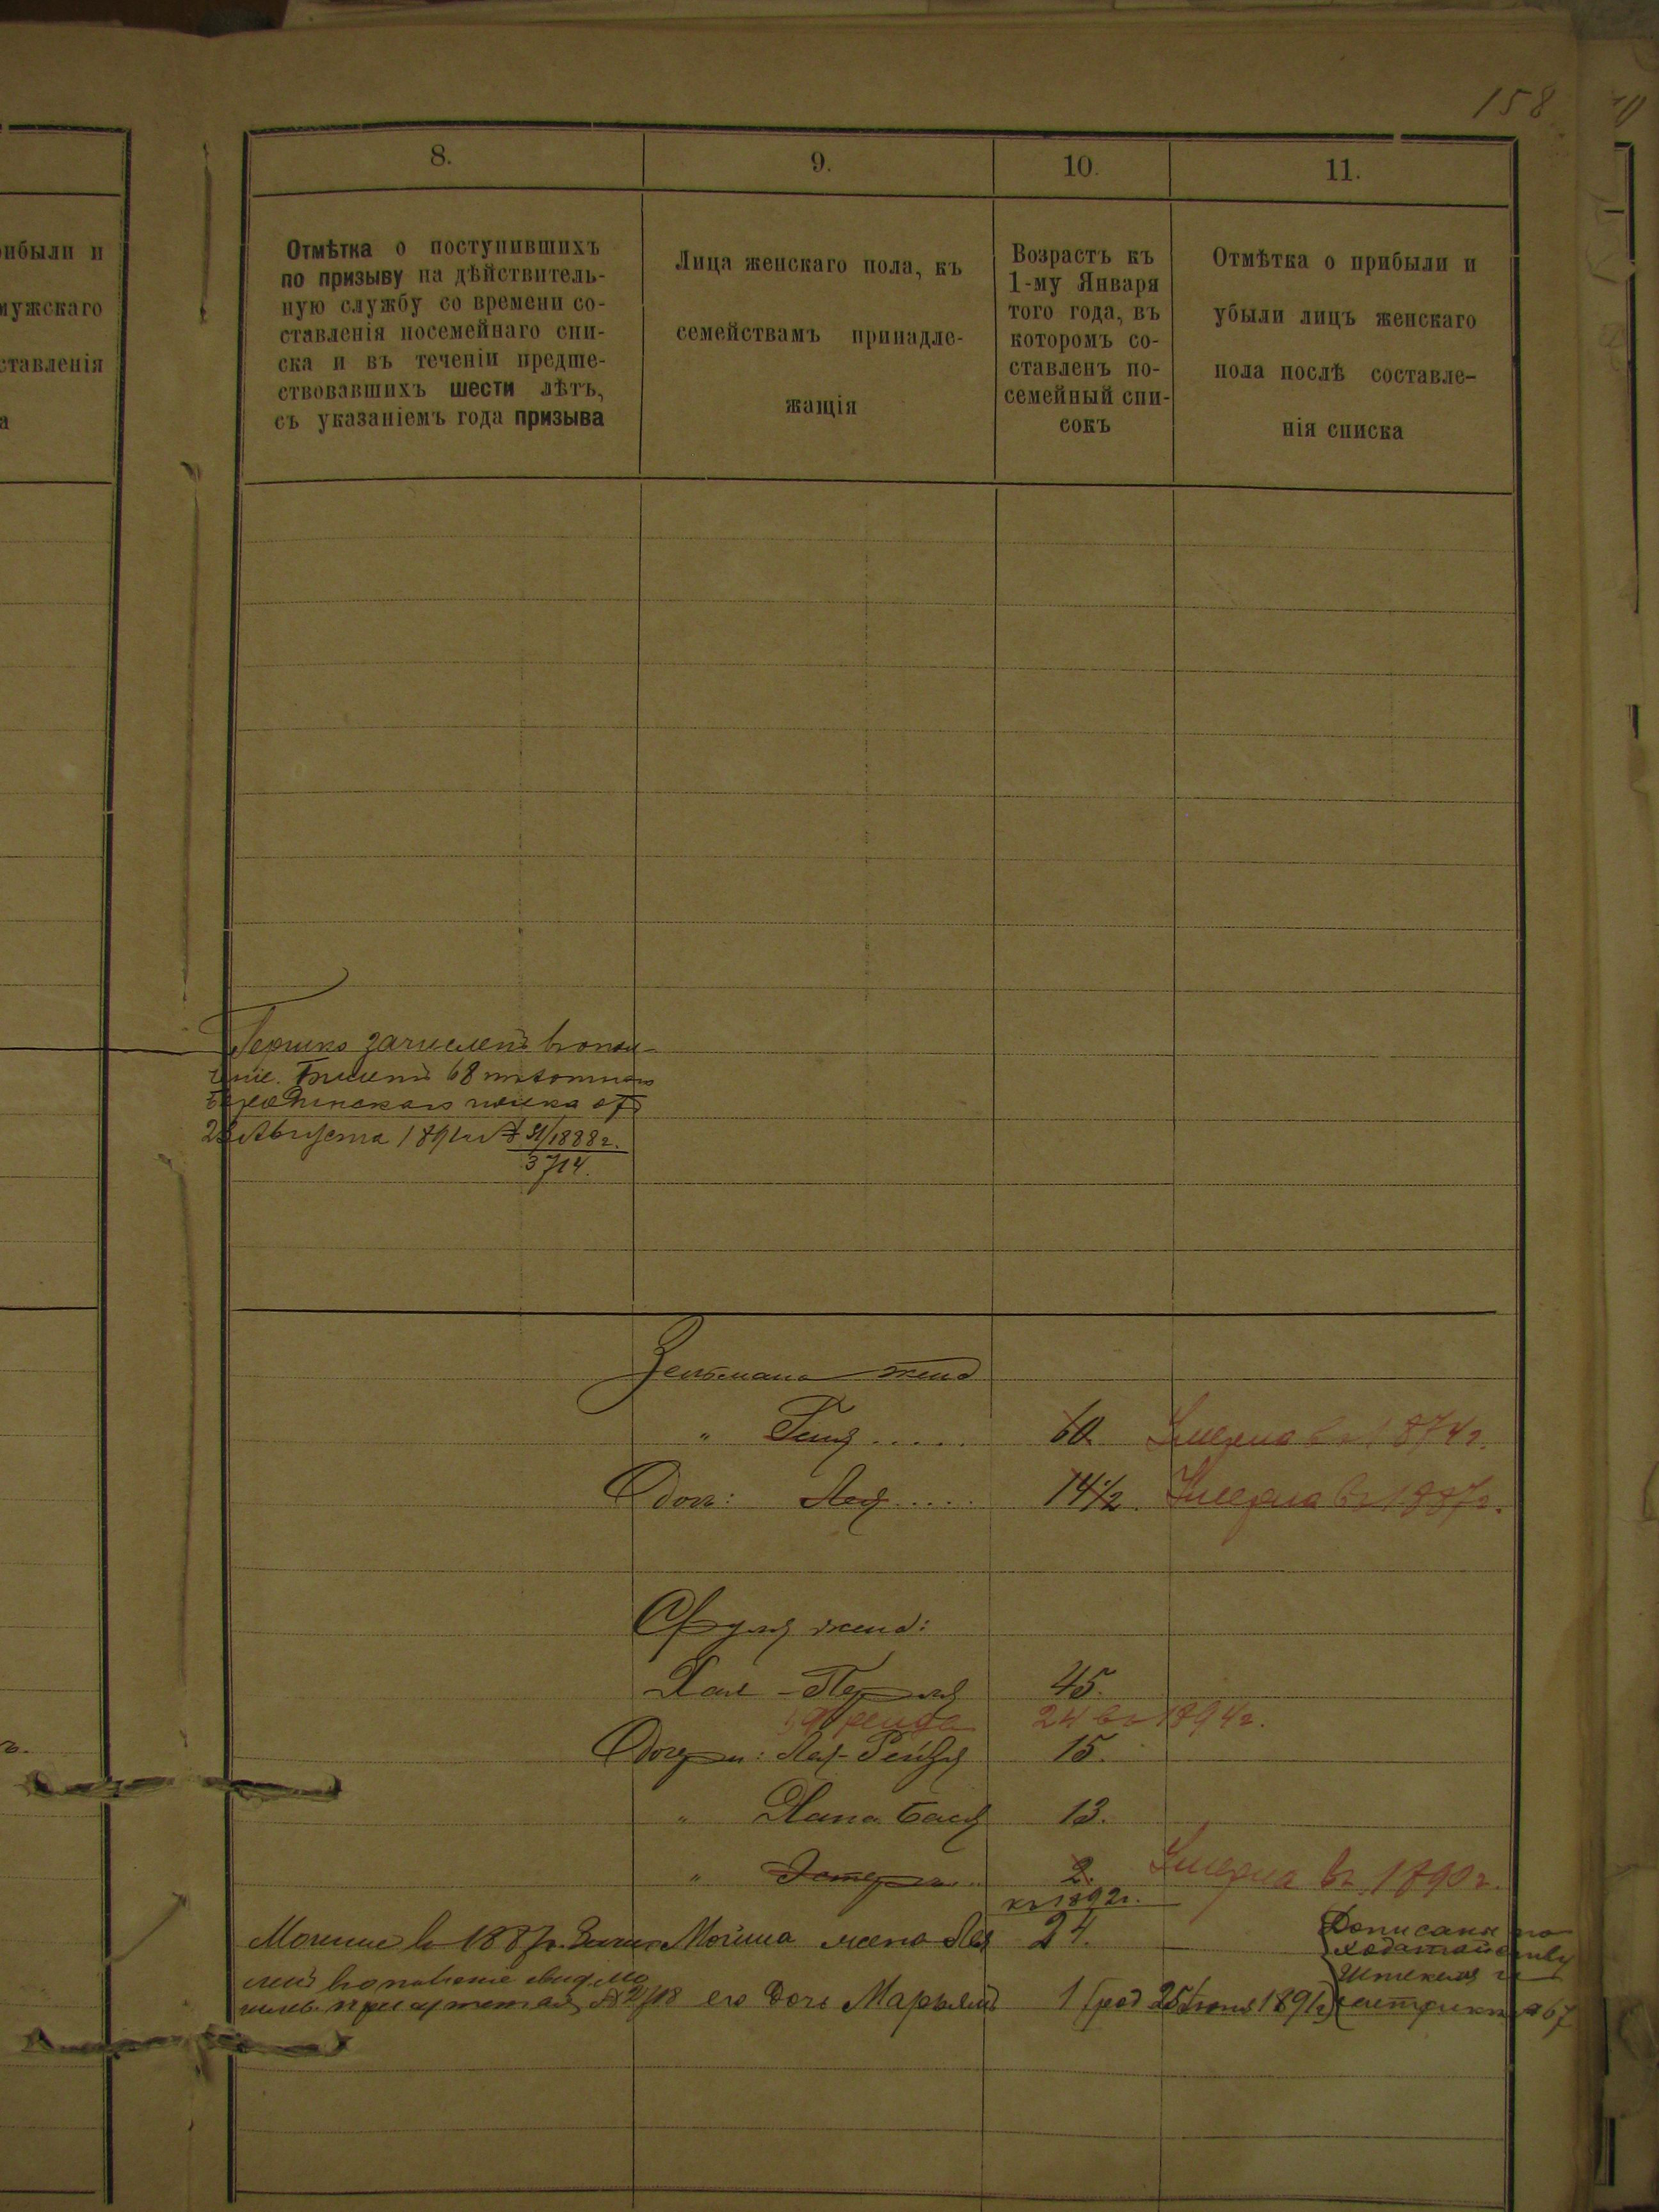 158
8.
9.
10.
11.
рибыли и
мужскаго
ставленія
а
Отмѣтка о поступившихъ
по призыву на дѣйствитель-
ную службу со времени со-
ставленія посемейнаго спи-
ска и въ теченіи предше-
ствовавшихъ шести лѣтъ,
съ указаніемъ года призыва
Лица женскаго пола, къ
семействамъ принадле-
жащія
Возрастъ къ
1-му Января
того года, въ
которомъ со-
ставленъ по-
семейный спи-
сокъ
Отмѣтка о прибыли и
убыли лицъ женскаго
пола послѣ составле-
нія списка
Гершко зачисленъ в опол-
ченіе. 68
полка отъ
28 Августа 1891 г. № 51/1888 г.
3714.
Зельмана жена
" Геня ..... 60. Умерла въ 1874 г.
дочь: Лея .... 14½. Умерла въ 1887 г.
Сруля жена:
Хая - Перля 45.
Фрейда 24 въ 1894 г.
Дочери: Лея-Рейзя 15.
" Хана Бася 13.
" Эстеръ .. 2. Умерла въ 1890 г.
къ 1892 г.
в 1887 г. Мойша жена Лея 24.
его дочь Марьямъ 1 (род 25 Іюня 1891 г)
Дописаны по
ходатайству
Штекеля и
метрики № 67